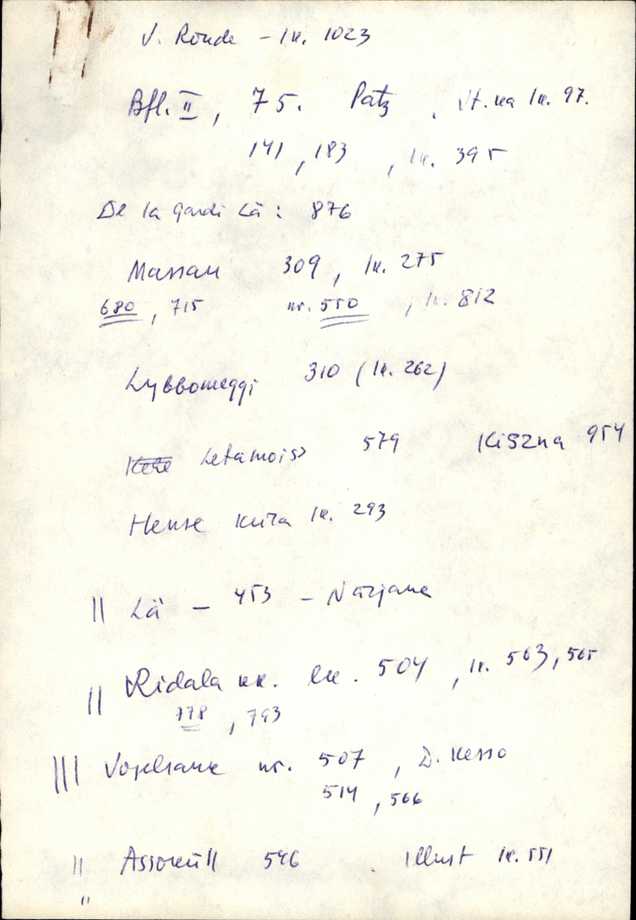 V. Rõude - lk. 1023
Bfl. II, 75. Patz, vt. ka lk. 97.
141, 183, lk. 395
De la Gardi Lä: 876
Massau 309, lk. 275
680, 715 nr. 550, lk. 812
Lybbomeggi 310 (lk. 262)
Letamois 579 Kiszna 954
Hense küla lk. 293
Lä - 453 - Närjane
Ridala kk. lk. 504, lk. 563, 565
778, 793
nr. 507, D. Kesso
514, 566
Assoküll 546 Illust lk. 551